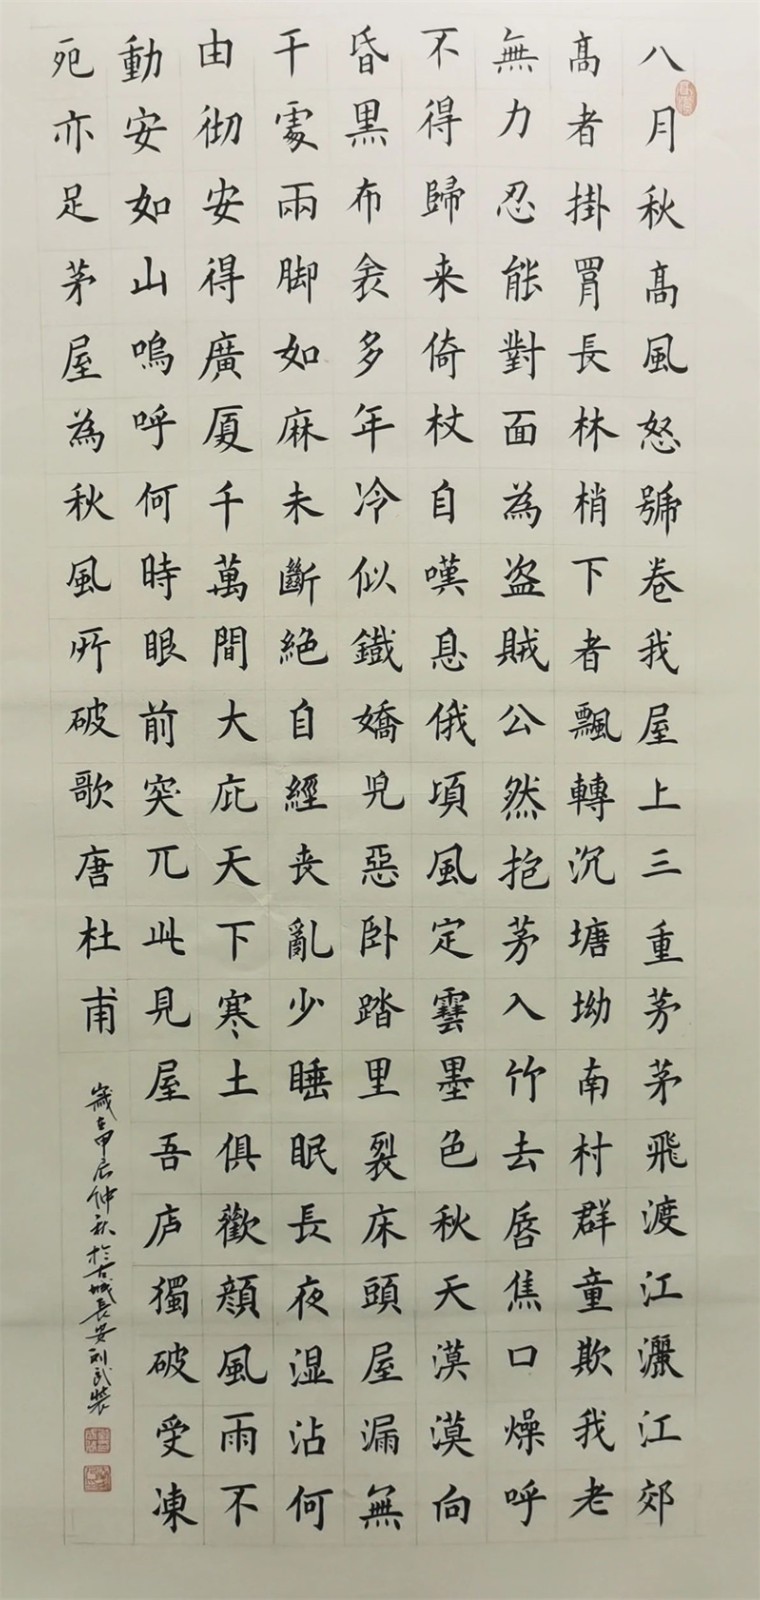 八月秋髙風怒號卷我屋上三重茅茅飛渡江灑江郊
髙者掛罥長林梢下者飄轉沉塘坳南村群童欺我老
無力忍能對面為盗賊公然抱茅入竹去唇焦口燥呼
不得歸来倚杖自嘆息俄頃風定雲墨色秋天漠漠向
昏黒布衾多年冷似鐵嬌兒惡卧踏里裂床頭屋漏無
干處兩脚如麻未斷絶自經丧亂少睡眠長夜湿沾何
由彻安得廣厦千萬間大庇天下寒土俱歡顔風雨不
動安如山嗚呼何時眼前突兀此見屋吾庐獨破受凍
死亦足茅屋為秋風所破歌唐杜甫
歲在甲辰仲秋於古城長安刘武裝